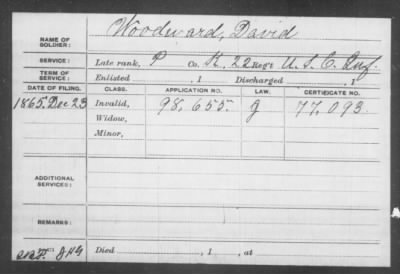 NAME OF SOLDIER: Woodward, David
SERVICE: Late rank, P Co. K, 22 Reg't U.S.C. Inf.
TERM OF SERVICE: Enlisted , 1 Discharged , 1
DATE OF FILING. CLASS. APPLICATION NO. LAW. CERTIFICATE NO.
1865. Dec 23 Invalid, 98,655. G 77,093.
Widow,
Minor,
ADDITIONAL SERVICES:
REMARKS:
Died , 1 , at